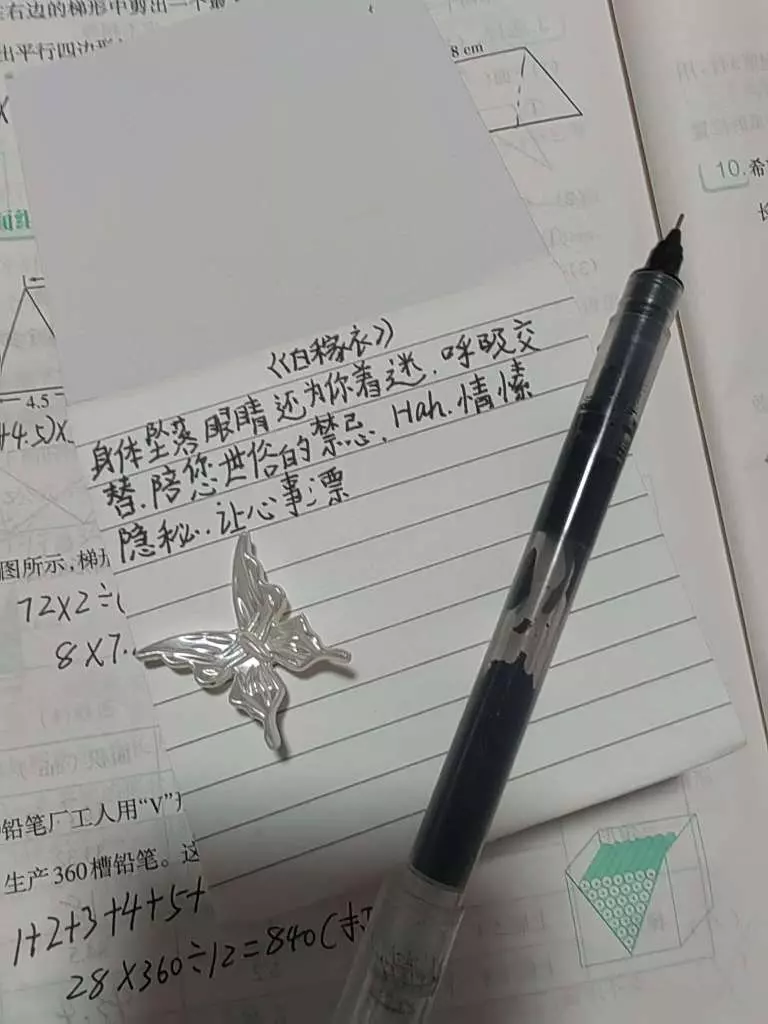 右边的梯形中剪出一个最
出平行四边形
8 cm
10.希
4.5
+4.5)×
《白稼衣》
身体坠落眼睛还为你着迷.呼吸交
替.陪您世俗的禁忌.Hah.情愫
隐秘.让心事漂
图所示,梯形
72×2÷(
8×7
铅笔厂工人用“V”
生产360槽铅笔。这
1+2+3+4+5+
28×360÷12=840(